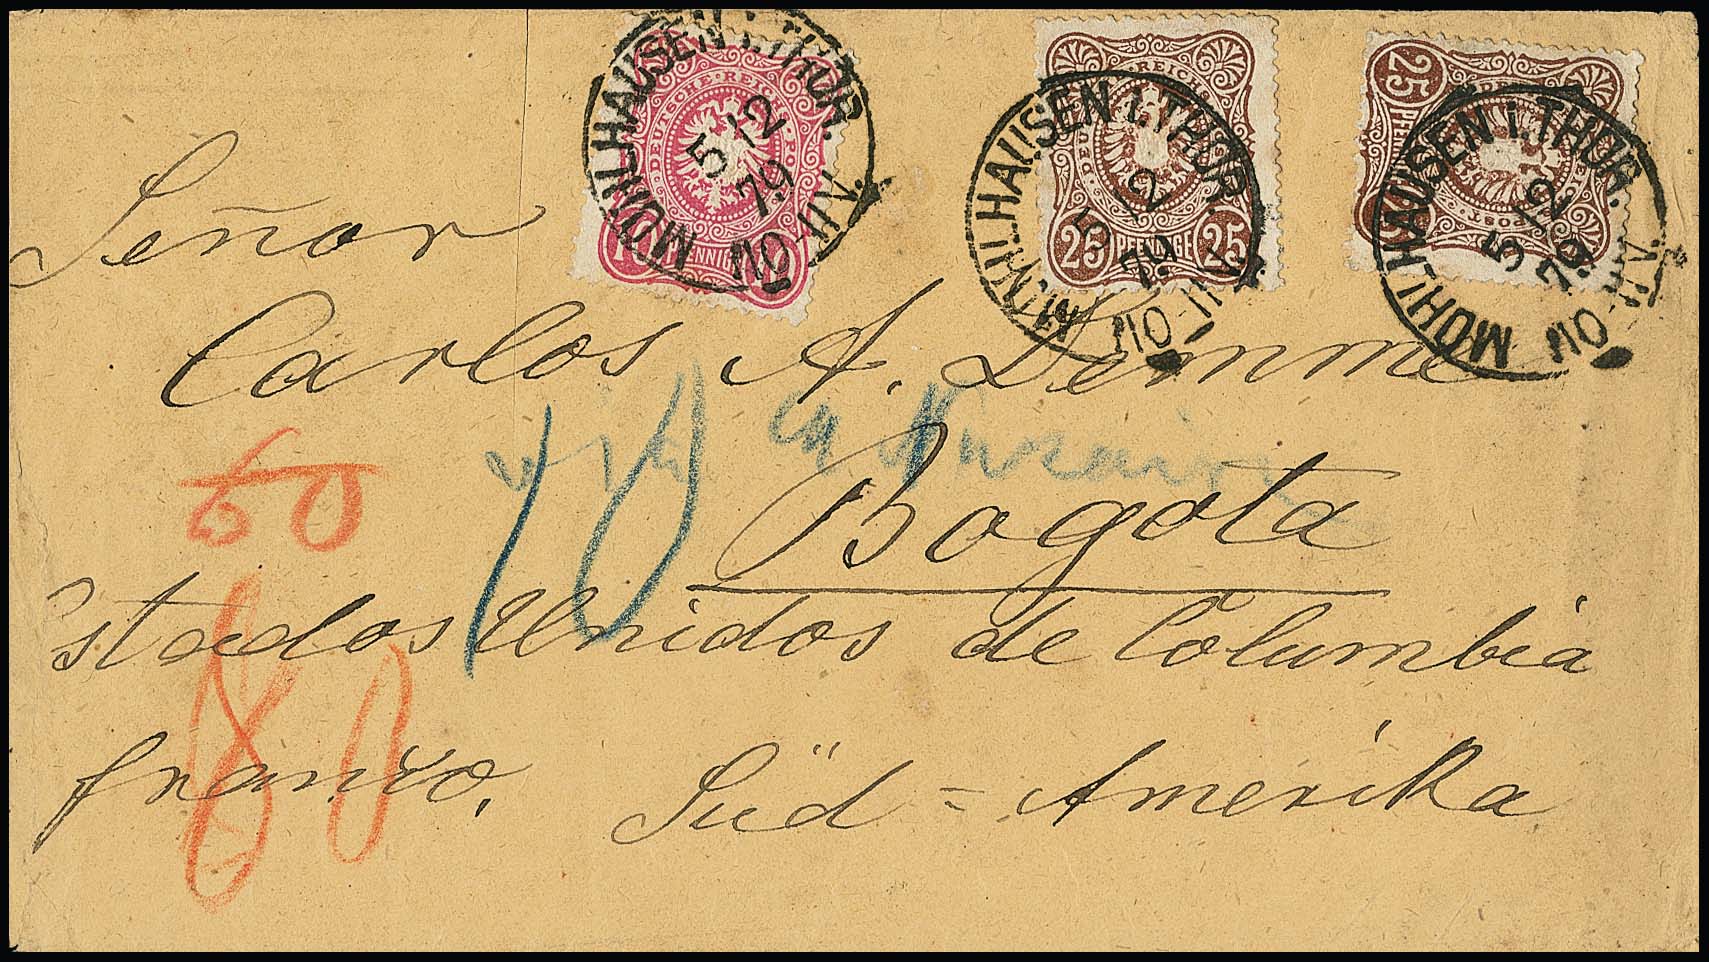 MÜHLHAUSEN I. THÜR.
5 12
79
10-11 V.
DEUTSCHE REICHS-POST
10 PFENNIG 10
MÜHLHAUSEN I. THÜR.
5 12
79
10-11 V.
REICHS
25 PFENNIGE 25
MÜHLHAUSEN I. THÜR.
5 12
79
10-11 V.
25
POST
Señor
Carlos A. Demme
via
10
60
Bogota
Estados Unidos de Columbia
80
franco. Süd=Amerika